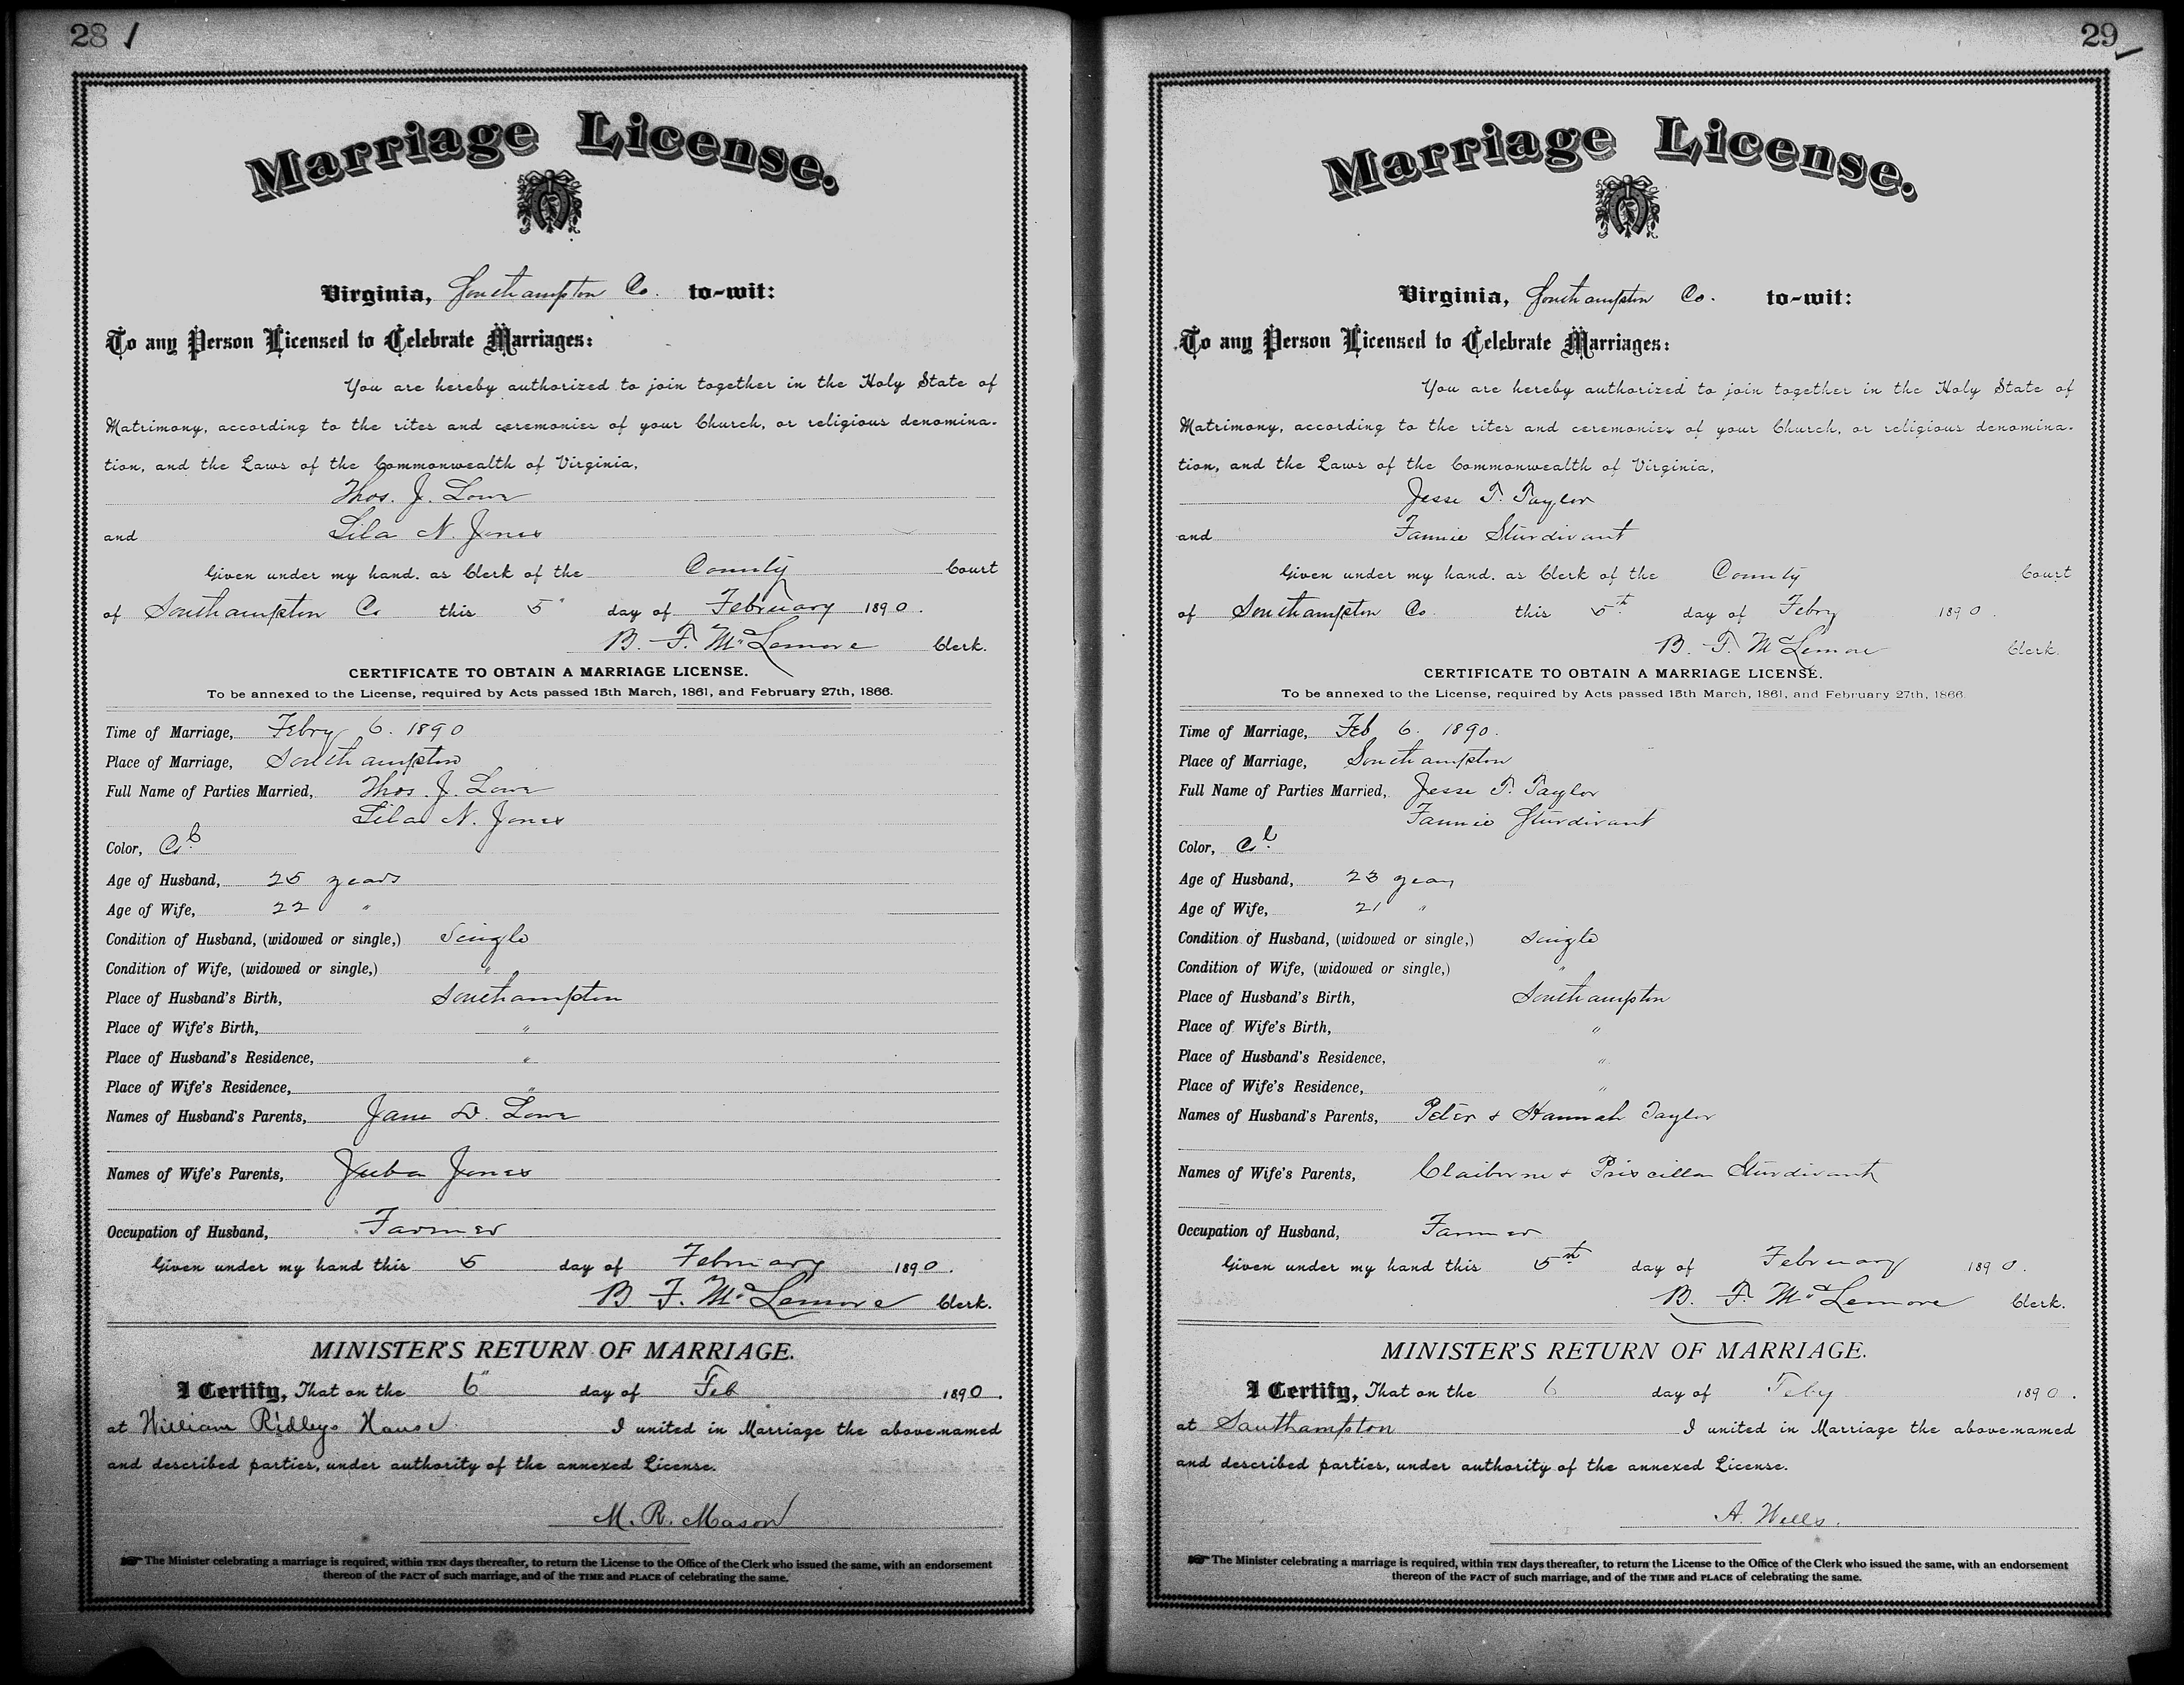 28
Marriage License.
Virginia, Southampton Co. to-wit:
To any Person Licensed to Celebrate Marriages:
You are hereby authorized to join together in the Holy State of
Matrimony, according to the rites and ceremonies of your Church, or religious denomina-
tion, and the Laws of the Commonwealth of Virginia,
Thos. J. Lowe
and Lila N. Jones
Given under my hand, as Clerk of the County Court
of Southampton Co this 5" day of February 1890.
B. F. McLemore Clerk.
CERTIFICATE TO OBTAIN A MARRIAGE LICENSE.
To be annexed to the License, required by Acts passed 15th March, 1861, and February 27th, 1866.
Time of Marriage, Febry 6. 1890
Place of Marriage, Southampton
Full Name of Parties Married, Thos. J. Lowe
Lila N. Jones
Color, Col
Age of Husband, 25 years
Age of Wife, 22 "
Condition of Husband, (widowed or single,) Single
Condition of Wife, (widowed or single,) "
Place of Husband's Birth, Southampton
Place of Wife's Birth, "
Place of Husband's Residence, "
Place of Wife's Residence, "
Names of Husband's Parents, Jane D. Lowe
Names of Wife's Parents, Juba Jones
Occupation of Husband, Farmer
Given under my hand this 5 day of February 1890.
B. F. McLemore Clerk.
MINISTER'S RETURN OF MARRIAGE.
I Certify, That on the 6" day of Feb 1890.
at William Ridleys House I united in Marriage the above-named
and described parties, under authority of the annexed License.
M. R. Mason
☛ The Minister celebrating a marriage is required, within TEN days thereafter, to return the License to the Office of the Clerk who issued the same, with an endorsement
thereon of the FACT of such marriage, and of the TIME and PLACE of celebrating the same.
29
Marriage License.
Virginia, Southampton Co. to-wit:
To any Person Licensed to Celebrate Marriages:
You are hereby authorized to join together in the Holy State of
Matrimony, according to the rites and ceremonies of your Church, or religious denomina-
tion, and the Laws of the Commonwealth of Virginia,
Jesse T. Taylor
and Fannie Sturdivant
Given under my hand, as Clerk of the County Court
of Southampton Co. this 5th day of Febry 1890.
B. F. McLemore Clerk.
CERTIFICATE TO OBTAIN A MARRIAGE LICENSE.
To be annexed to the License, required by Acts passed 15th March, 1861, and February 27th, 1866.
Time of Marriage, Feb 6. 1890.
Place of Marriage, Southampton
Full Name of Parties Married, Jesse T. Taylor
Fannie Sturdivant
Color, Col.
Age of Husband, 23 years
Age of Wife, 21 "
Condition of Husband, (widowed or single,) Single
Condition of Wife, (widowed or single,) "
Place of Husband's Birth, Southampton
Place of Wife's Birth, "
Place of Husband's Residence, "
Place of Wife's Residence, "
Names of Husband's Parents, Peter & Hannah Taylor
Names of Wife's Parents, Claiborne & Priscilla Sturdivant
Occupation of Husband, Farmer
Given under my hand this 5th day of February 1890.
B. F. McLemore Clerk.
MINISTER'S RETURN OF MARRIAGE.
I Certify, That on the 6 day of Feby 1890.
at Southampton I united in Marriage the above-named
and described parties, under authority of the annexed License.
A. Wells.
☛ The Minister celebrating a marriage is required, within TEN days thereafter, to return the License to the Office of the Clerk who issued the same, with an endorsement
thereon of the FACT of such marriage, and of the TIME and PLACE of celebrating the same.